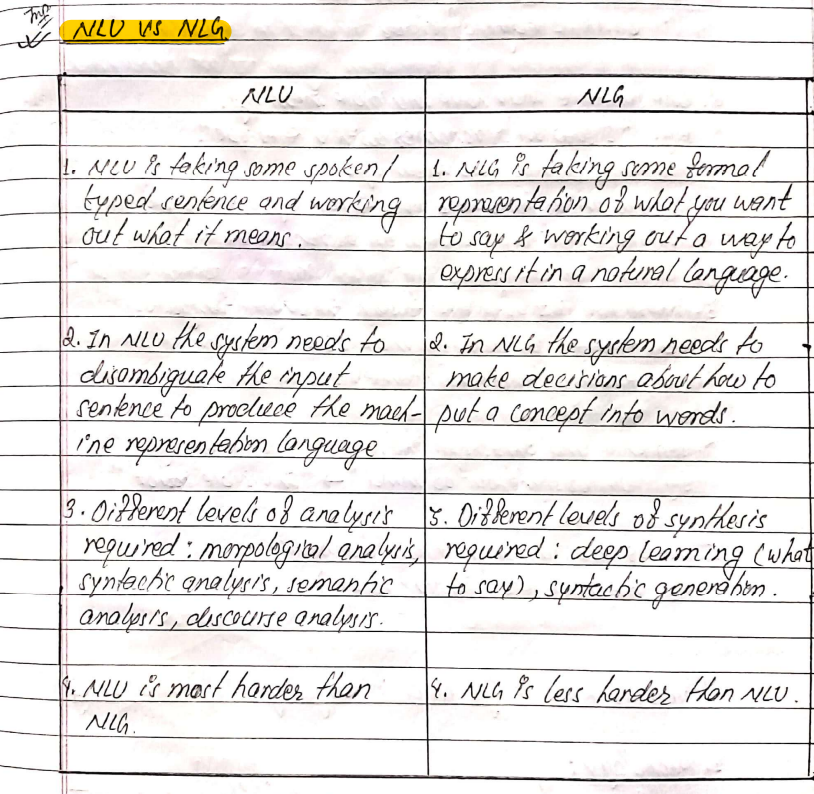 Imp
NLU vs NLG
NLU
NLG
1. NLU is taking some spoken/
typed sentence and working
out what it means.
1. NLG is taking some formal
representation of what you want
to say & working out a way to
express it in a natural language.
2. In NLU the system needs to
disambiguate the input
sentence to produce the mach-
ine representation language
2. In NLG the system needs to
make decisions about how to
put a concept into words.
3. Different levels of analysis
required : morpological analysis,
syntactic analysis, semantic
analysis, discourse analysis.
3. Different levels of synthesis
required : deep learning (what
to say), syntactic generation.
4. NLU is most harder than
NLG.
4. NLG is less harder than NLU.